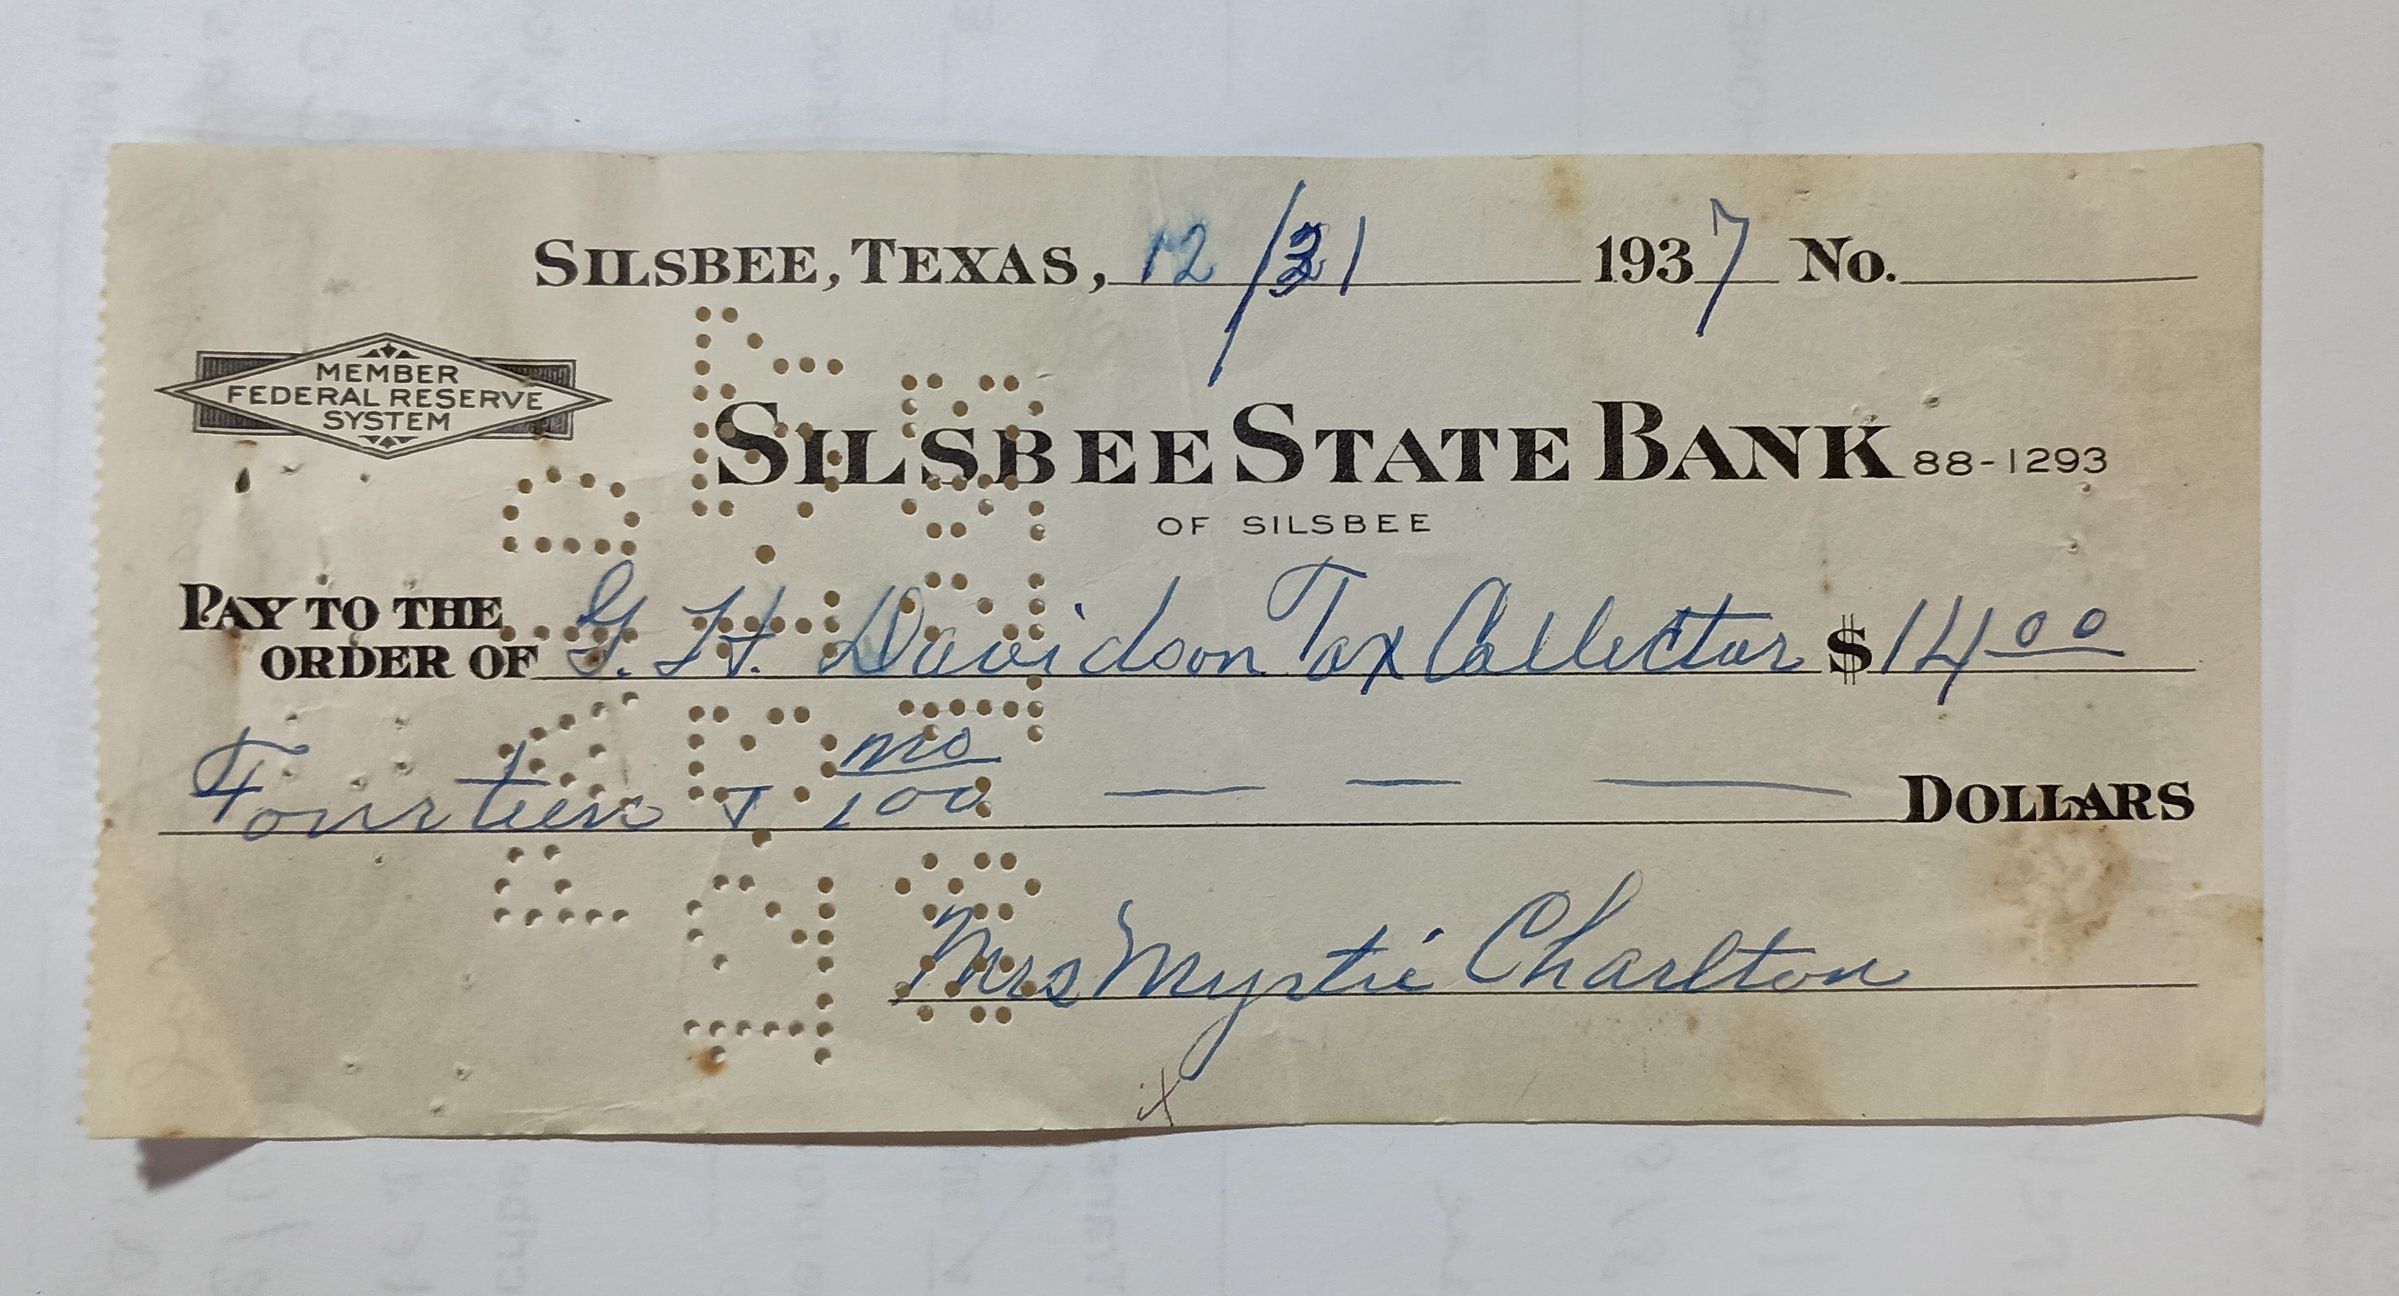 SILSBEE, TEXAS, 12/31 1937 No.
MEMBER
FEDERAL RESERVE
SYSTEM
SILSBEE STATE BANK 88-1293
OF SILSBEE
PAY TO THE
ORDER OF G. H. Davidson Tax Collector $ 14 00
Fourteen & no/100 DOLLARS
Mrs Myrtie Charlton